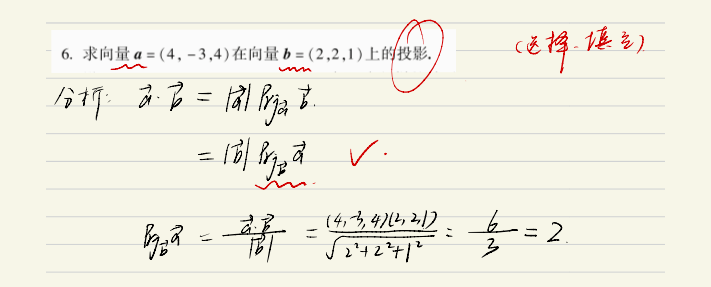 6. 求向量 a = (4, -3,4) 在向量 b = (2,2,1) 上的投影.
(选择、填空)
分析: a⃗·b⃗ = |a⃗| Prj_a⃗ b⃗.
= |b⃗| Prj_b⃗ a⃗ ✓.
Prj_b⃗ a⃗ = a⃗·b⃗ / |b⃗| = (4,-3,4)(2,2,1) / √(2²+2²+1²) = 6/3 = 2.